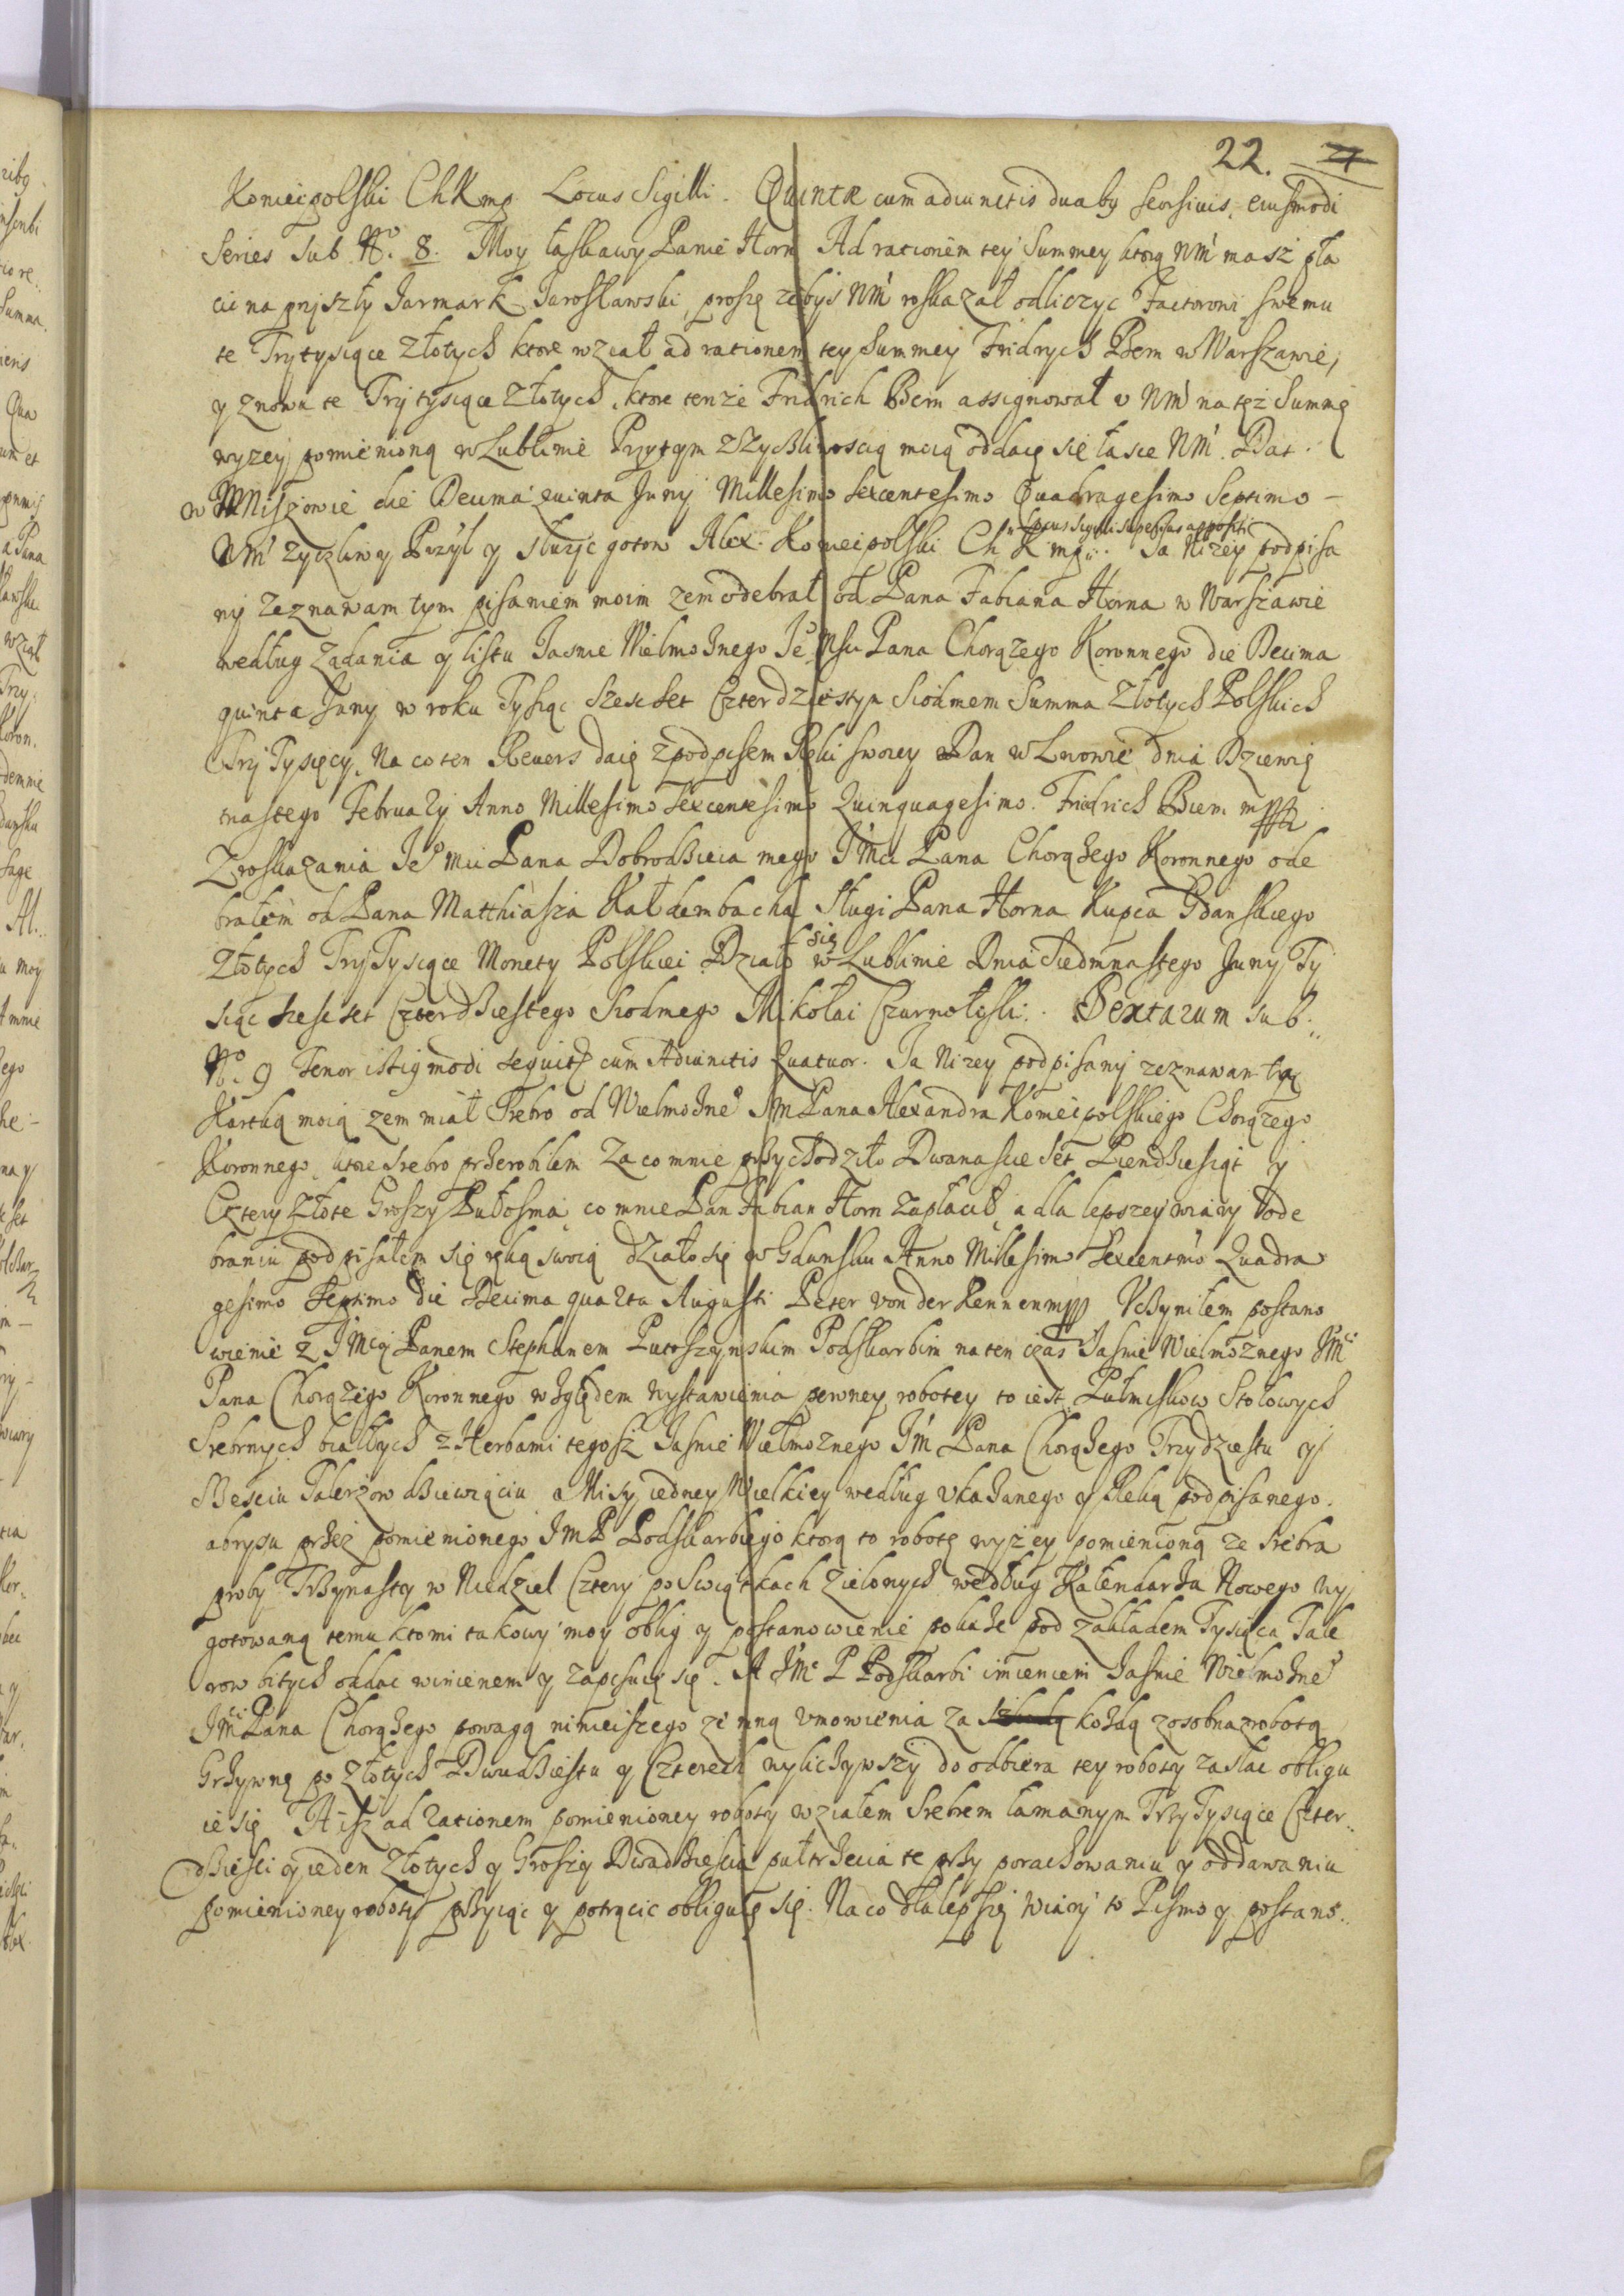 22. 27
Koniecpolski ChKmp Locus Sigilli. Quintæ cum adiunctis duaby seorsiuis, eiusmodi
Series Sub No. 8. Moy łaskawy Panie Horn Ad rationem tey Summey ktorą WM masz pła
cic na przszły Jarmark Jarosławski, proszę zebys WM roskazał odliczyc Factorowi swemu
te Trzy tysiące złotych ktore wział ad rationem tey Summey Fridrych Bem w Warszawie,
y znowu te Trzy tysiące złotych, ktore tenże Fridrich Bem assignował v WM na tęż Summę
wyzey pomienioną w Lublinie Przytym z zyczliwoscią moią oddaię się łasce WM. Dat.
w Mniszowie die Decima quinta Juny Millesimo Sexcentesimo Quadragesimo Septimo –
WM zyczliwy Przyl y słuzyc gotow Alex. Koniecpolski Ch K mp. Locus Sigilli superius appositi Ja Nizey podpisa
ny zeznawam tym pisaniem moim zem odebrał od Pana Fabiana Horna w Warszawie
według ządania y listu Jasnie Wielmoznego Jeo Msci Pana Chorązego Koronnego die Decima
quinta Juny w roku Tysiąc Szescset Czterdziestym Siodmem Summa Złotych Polskich
Trzy Tysięcy, Na co ten Reuers daię z podpisem Ręki swoiey Dan w Lwowie dnia Dziewię
tnastego February Anno Millesimo Sexcentesimo Quinquagesimo. Fridrich Biem mpp
Z roskazania Jeo Mci Pana Dobrodzieia mego JMci Pana Chorązego Koronnego ode
brałem od Pana Matthiasza Kałdembacha Sługi Pana Horna Kupca Gdanskiego
Złotych Trzy Tysiące Monety Polskiei Działo się w Lublinie Dnia Siedmnastego Juny Ty
siąc Szescset Czterdziestego Siodmego Mikołai Czarnołęski. Sextarum sub
No. 9 Tenor istiusmodi sequitur cum Adiunctis Quatuor. Ja Nizey podpisany zeznawam tą
Kartką moią zem miał Srebro od Wielmoznego JM Pana Alexandra Koniecpolskiego Chorązego
Koronnego, ktore Srebro przerobilem za co mnie przychodziło Dwanascie Set Piendziesiąt y
Cztery Złote Groszy Pułosma, co mnie Pan Fabian Horn zapłacił, a dla lepszey wiary Vode
braniu podpisałem się ręką swoią działo się w Gdansku Anno Millesimo Sexcentmo Quadra
gesimo Septimo die Decima quarta Augusti Peter von der Rennen mpp Vczyniłem postano
wienie z JMcią Panem Stephanem Lutoszynskim Podskarbim na ten czas Jasnie Wielmoznego JMci
Pana Chorązego Koronnego względem wystawienia pewney robotey to iest Pułmiskow Stołowych
Srebrnych białych z Herbami tegosz Jasnie Wielmoznego JM Pana Chorązego Trzydziestu y
Szesciu Talerzow dziewiąciu a Misy iedney Wielkiey według vkazanego y Ręką podpisanego
abrysu przez pomienionego JMP Podskarbiego ktorą to robotę wyzey pomienioną ze Srebra
proby Trzynastey w Niedziel Cztery po Swiątkach Zielonych według Kalendarza Nowego wy
gotowaną temu kto mi takowy moy oblig y postanowienie pokaze pod zakładem Tysiąca Tale
row bitych oddac winienem y zapisuię się. A JMc P Podskarbi imieniem Jasnie Wielmozneo
JMci Pana Chorązego powagą ninieiszego ze mną vmowienia za kozdą zosobna robotą
Grzywnę po złotych Dwudziestu y Czterech wyliczywszy do odbiera tey roboty zasłac obligu
ie się. A isz ad rationem pomienioney roboty wziałem Srebrem łamanym Trzy Tysiące Czter
dziesci y ieden Złotych y Groszy Dwadziescia pułtrzecia te przy porachowaniu y oddawaniu
pomienioney roboty przyiąc y potrącic obliguię się. Na co dla lepszey wiary to Pismo y postano